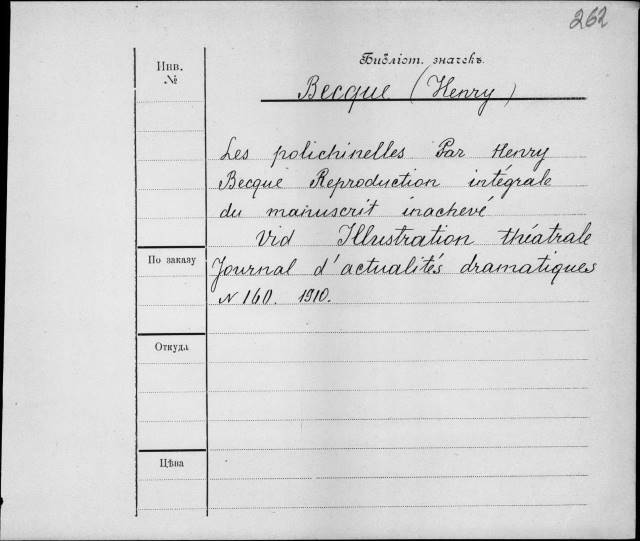 262
Инв.
№
Библіот. значекъ.
Becque (Henry)
Les polichinelles Par Henry
Becque Reproduction intégrale
du manuscrit inachevé
Vid Illustration théatrale
По заказу
Journal d'actualités dramatiques
N 160. 1910.
Откуда
Цѣна